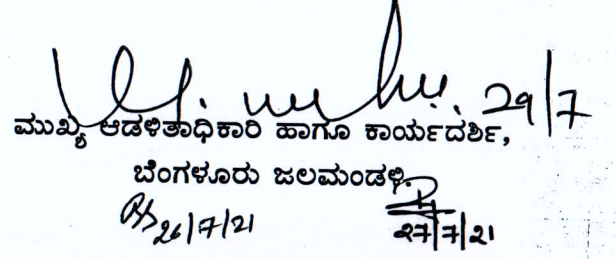 29/7
ಮುಖ್ಯ ಆಡಳಿತಾಧಿಕಾರಿ ಹಾಗೂ ಕಾರ್ಯದರ್ಶಿ,
ಬೆಂಗಳೂರು ಜಲಮಂಡಳಿ.
26/7/21 27/7/21